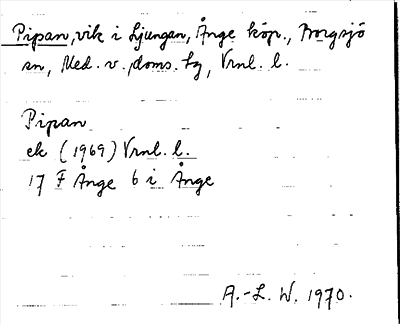 Pipan, vik i Ljungan, Ånge köp., Borgsjö
sn, Med. v. doms. hg, Vrnl. l.
Pipan
ek (1969) Vrnl. l.
17 F Ånge 6 i Ånge
A.-L. W. 1970.